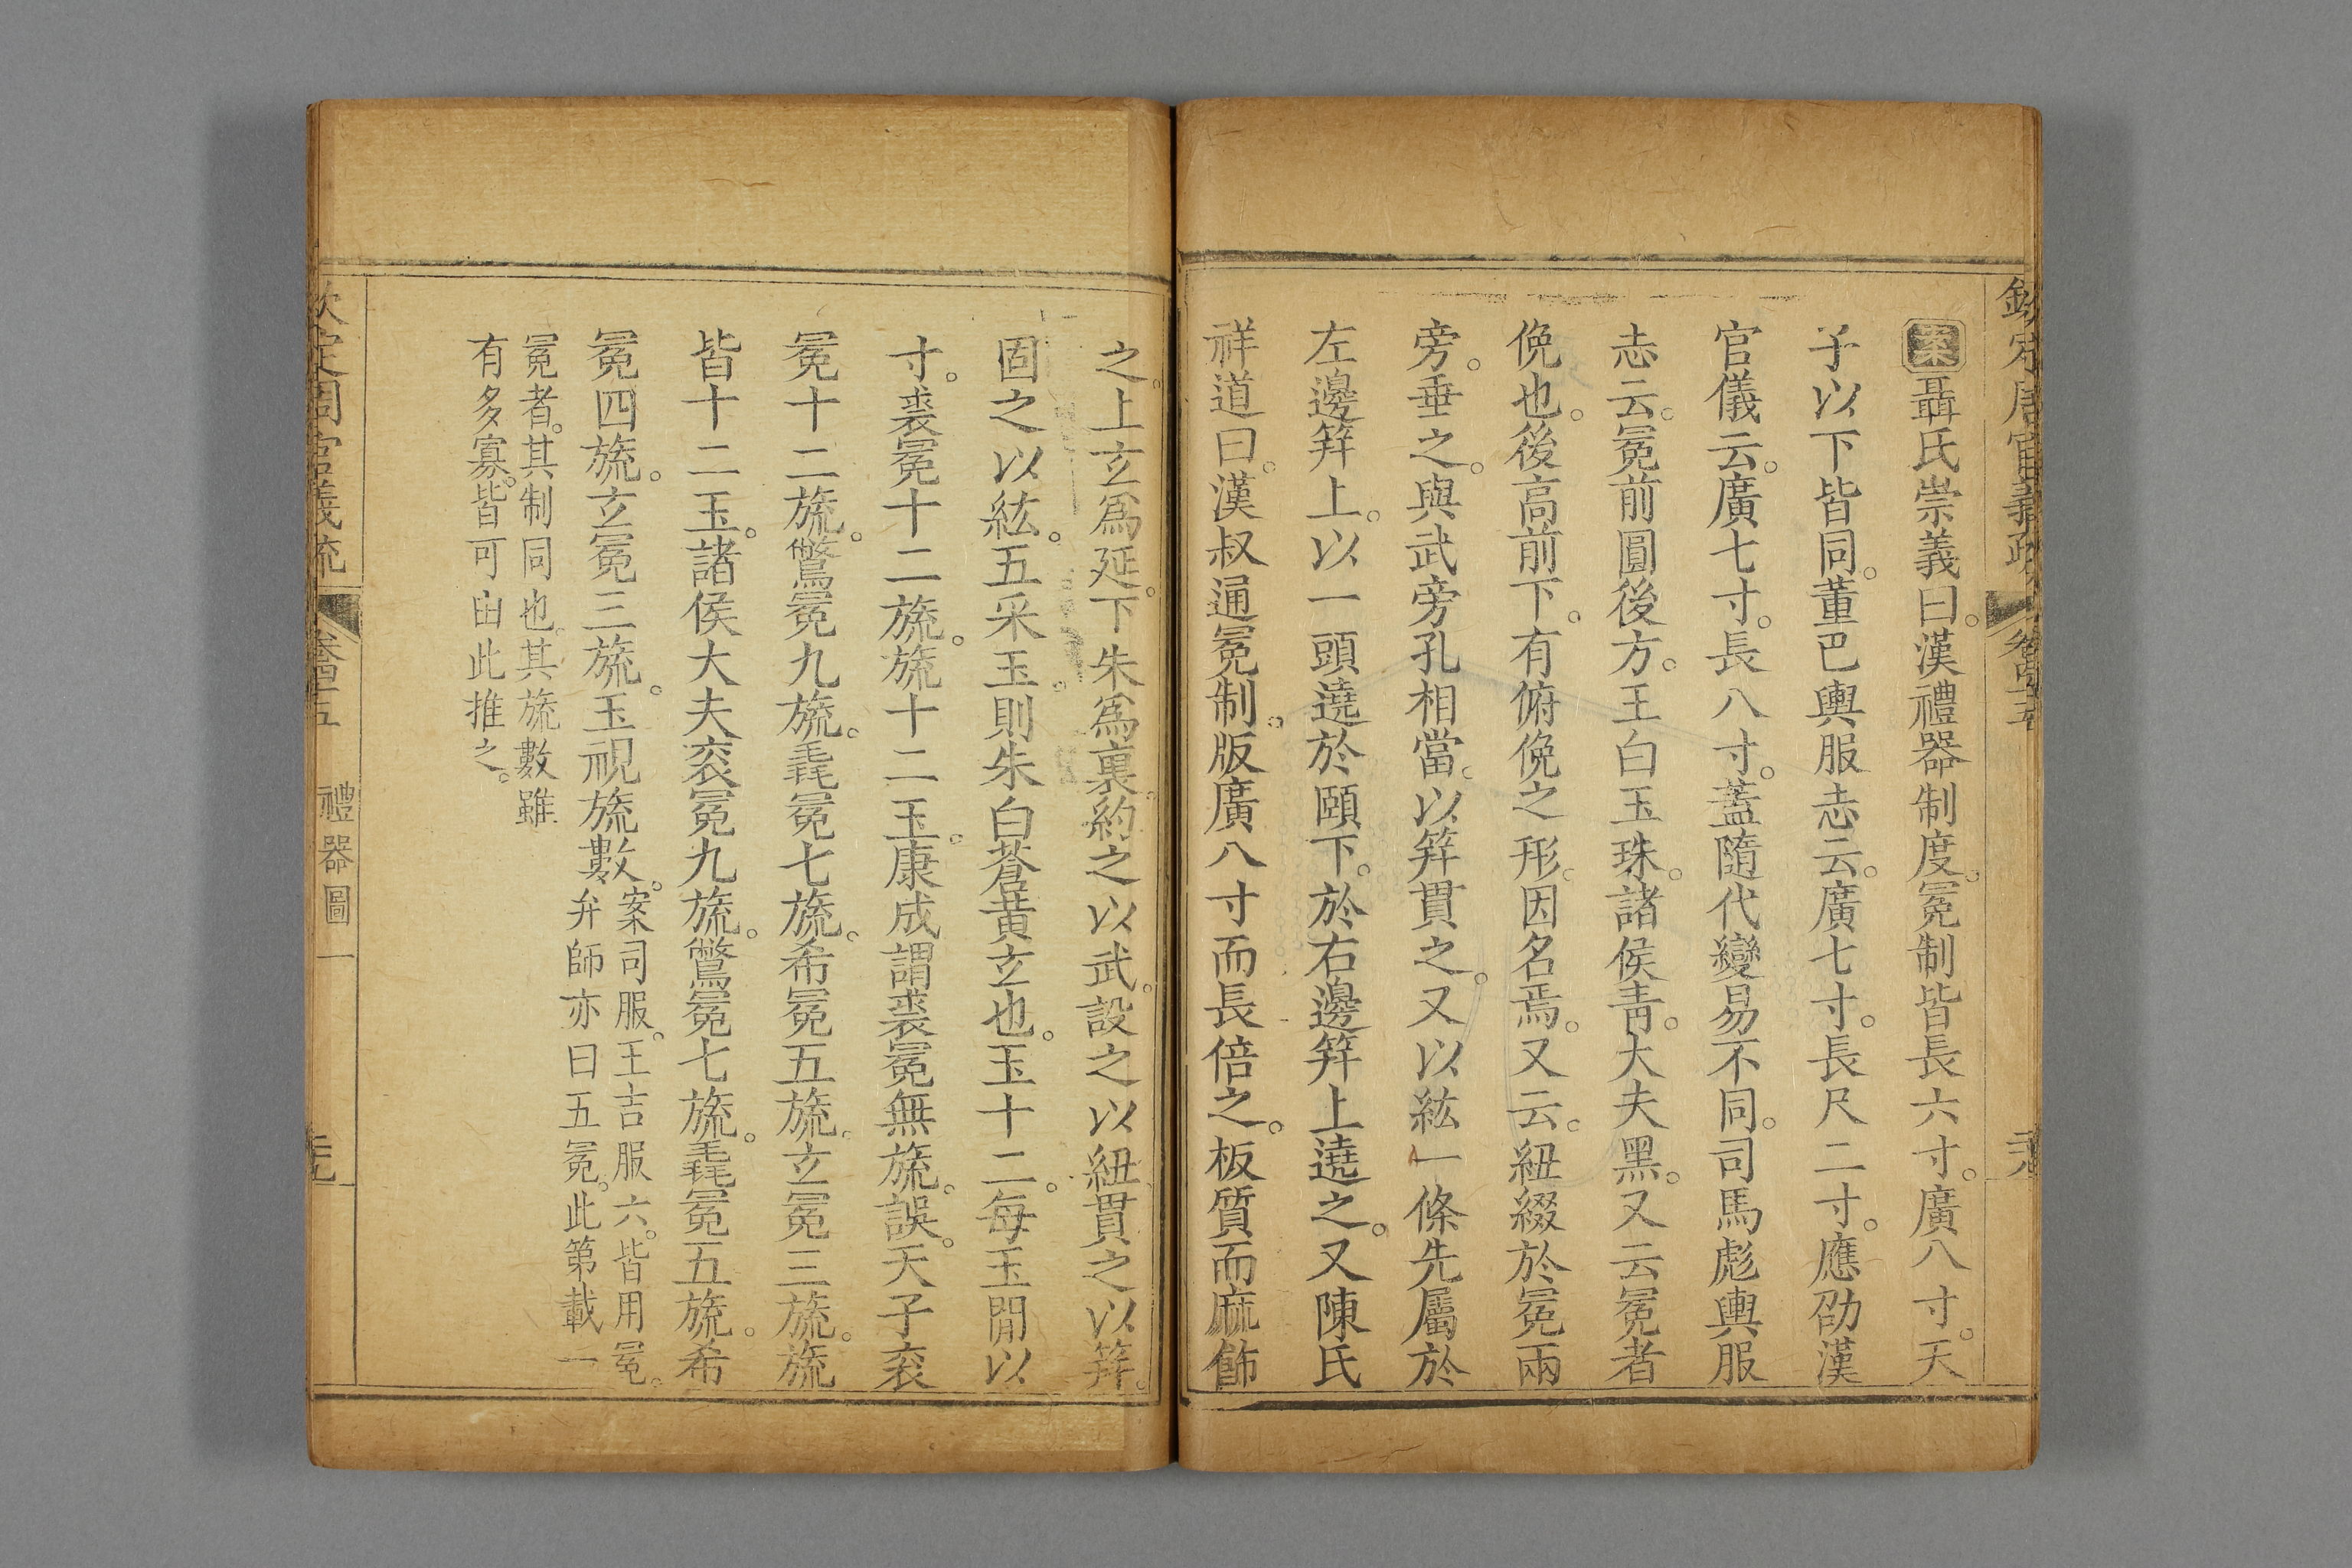 欽定周官義疏 卷四十五
案聶氏崇義曰。漢禮器制度。冕制皆長六寸。廣八寸。天
子以下皆同。董巴輿服志云。廣七寸。長尺二寸。應劭漢
官儀云。廣七寸。長八寸。蓋隨代變易不同。司馬彪輿服
志云。冕前圓後方。王白玉珠。諸侯靑。大夫黑。又云冕者
俛也。後高前下。有俯俛之形。因名焉。又云。紐綴於冕兩
旁。垂之。與武旁孔相當。以笄貫之。又以紘一條先屬於
左邊笄上。以一頭遶於頤下。於右邊笄上遶之。又陳氏
祥道曰。漢叔通冕制。版廣八寸而長倍之。板質而麻飾
之。上玄爲延。下朱爲裏。約之以武。設之以紐貫之以笄。
固之以紘。五采玉。則朱白蒼黃玄也。玉十二。每玉閒以
寸。裘冕十二旒。旒十二玉。康成謂裘冕無旒。誤。天子衮
冕十二旒。鷩冕九旒。毳冕七旒。希冕五旒。玄冕三旒。旒
皆十二玉。諸侯大夫衮冕九旒。鷩冕七旒。毳冕五旒。希
冕四旒。玄冕三旒。玉視旒數。案司服。王吉服六。皆用冕。
弁師亦曰五冕。此第載一
冕者。其制同也。其旒數雖
有多寡。皆可由此推之。
欽定周官義疏 卷四十五 禮器圖一